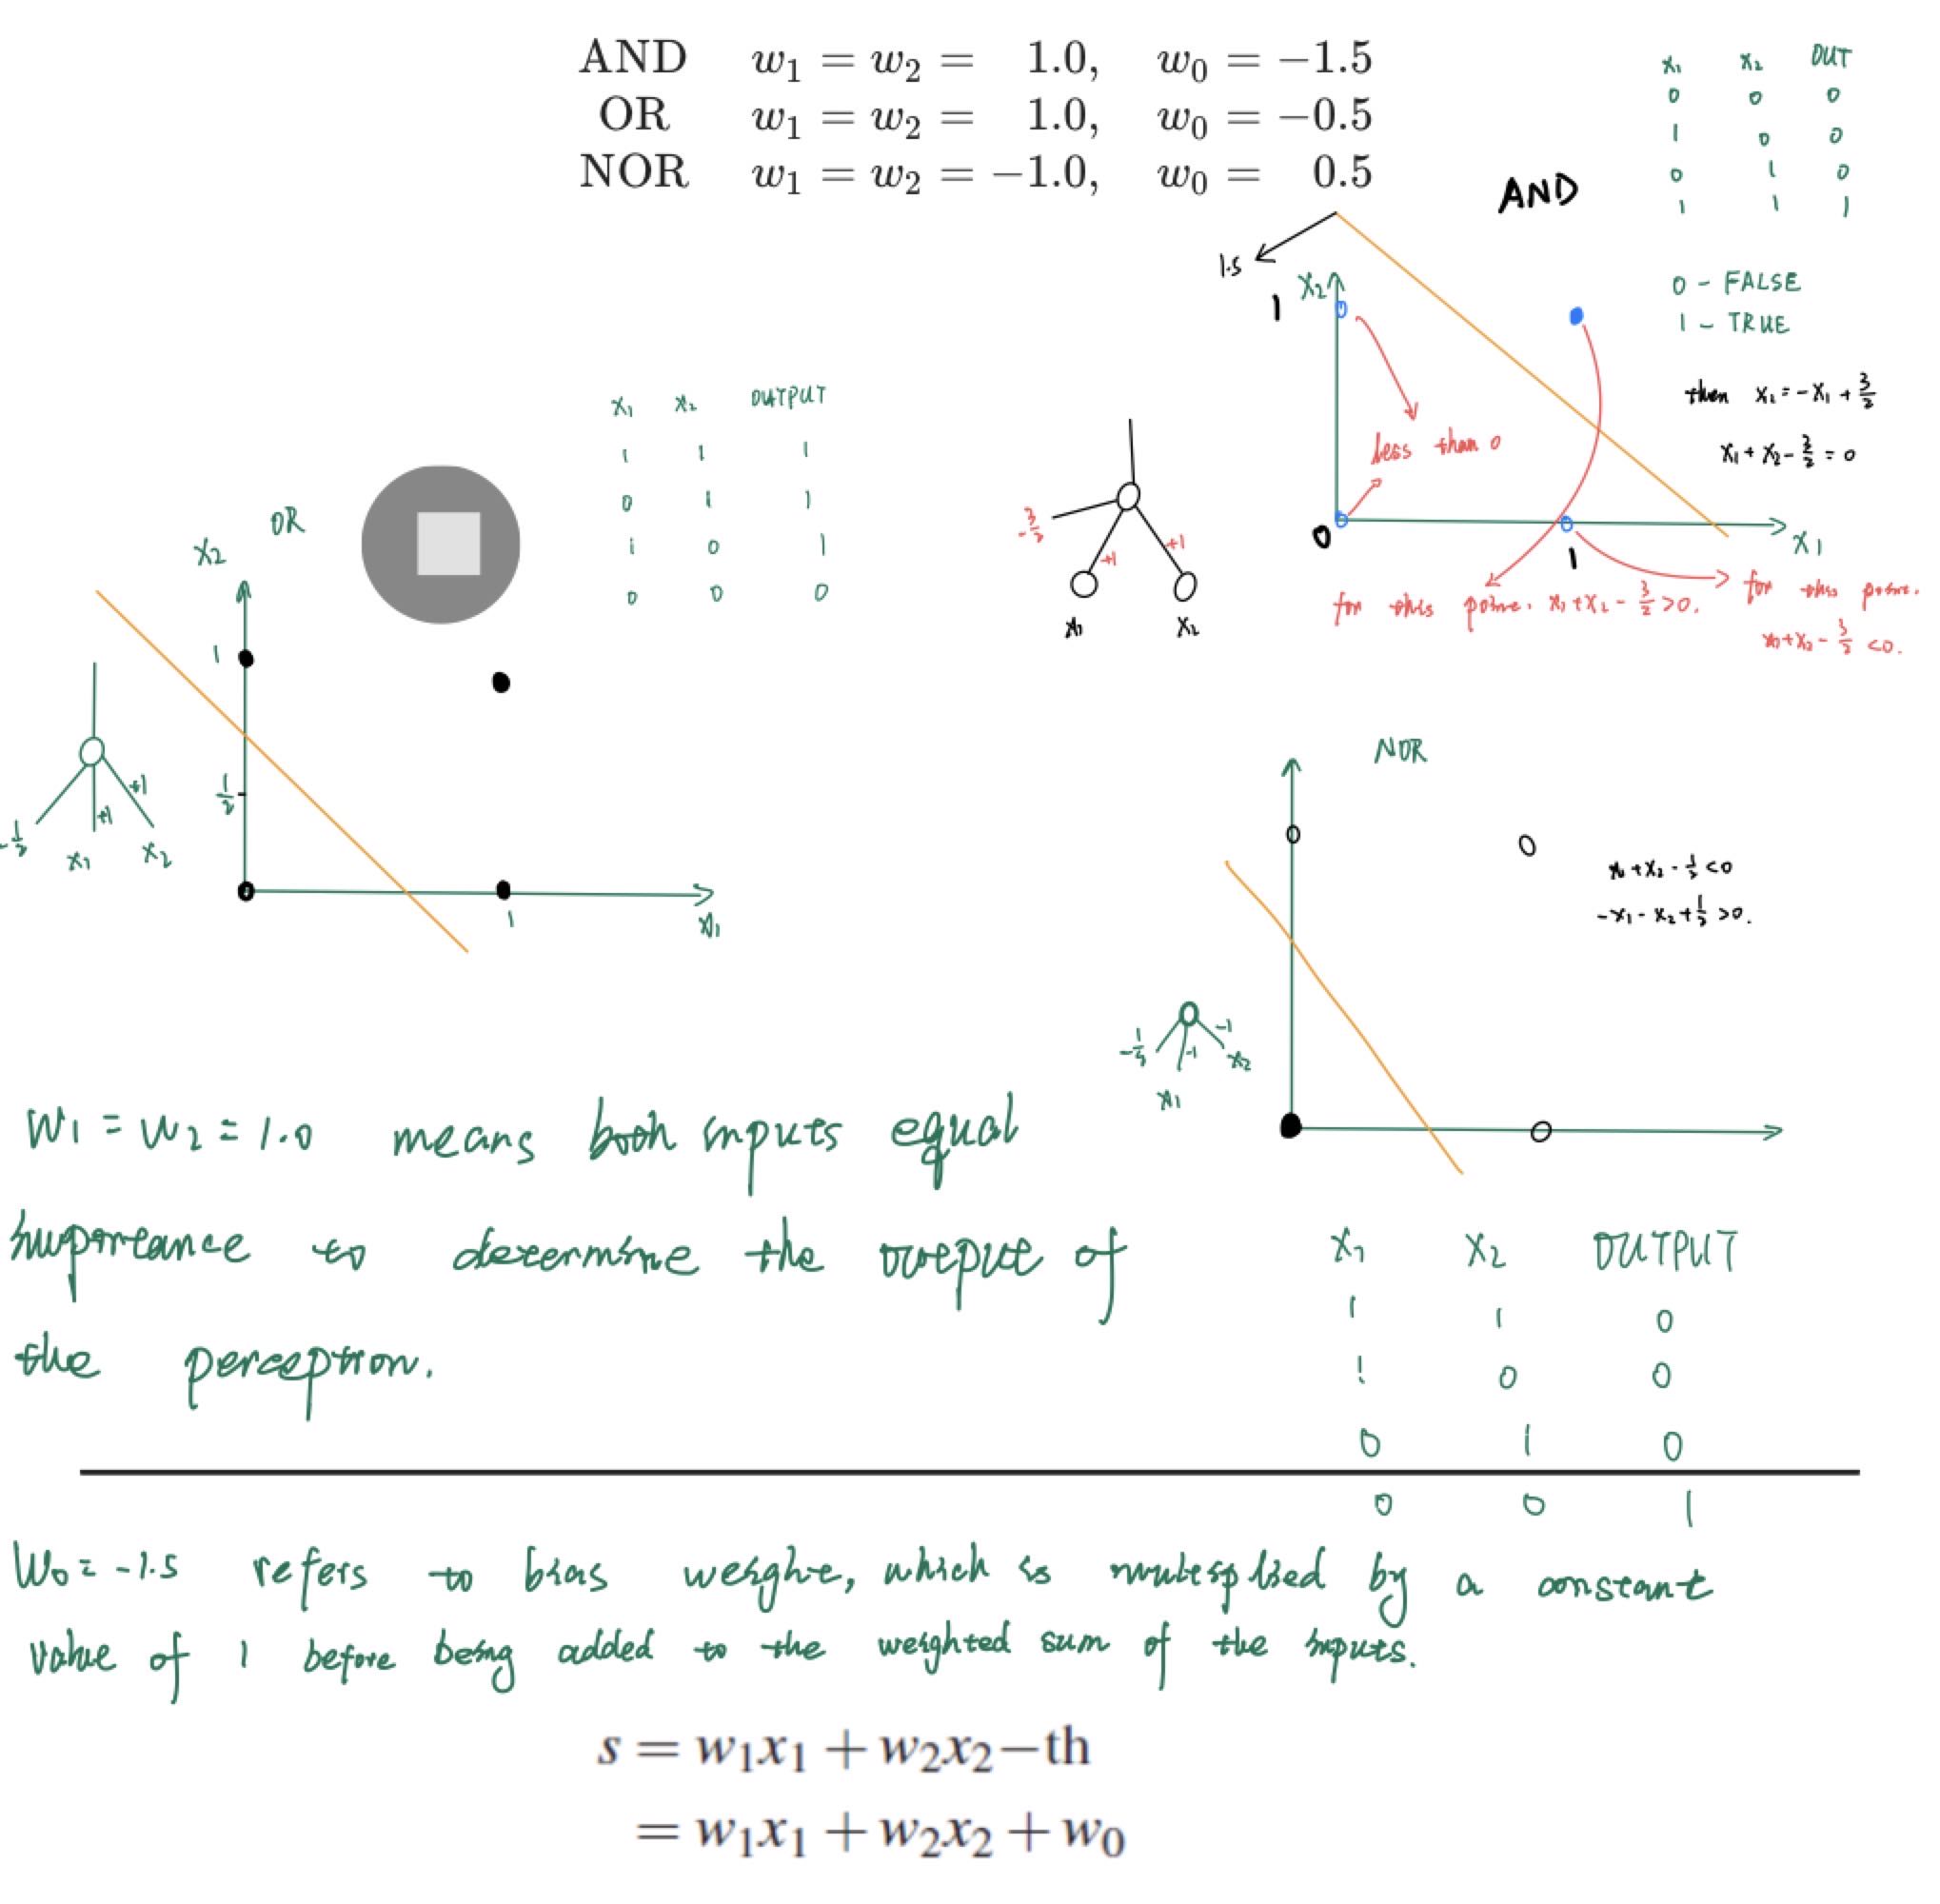 AND w₁ = w₂ = 1.0, w₀ = −1.5
OR w₁ = w₂ = 1.0, w₀ = −0.5
NOR w₁ = w₂ = −1.0, w₀ = 0.5
AND
x₁ x₂ OUT
0 0 0
1 0 0
0 1 0
1 1 1
0 - FALSE
1 - TRUE
1.5
x₂
1
0
1
x₁
less than 0
then x₂ = -x₁ + 3/2
x₁ + x₂ - 3/2 = 0
for this point. x₁ + x₂ - 3/2 > 0.
for this point.
x₁ + x₂ - 3/2 < 0.
-3/2
+1
+1
x₁ x₂
OR
x₁ x₂ OUTPUT
1 1 1
0 1 1
1 0 1
0 0 0
x₂
1
1/2
1
x₁
+1
+1
-1/2
x₁ x₂
NOR
x₁ + x₂ - 1/2 < 0
-x₁ - x₂ + 1/2 > 0.
-1
-1
x₂
x₁
w₁ = w₂ = 1.0 means both inputs equal
importance to determine the output of
the perceptron.
x₁ x₂ OUTPUT
1 1 0
1 0 0
0 1 0
0 0 1
W₀ = -1.5 refers to bias weight, which is multiplied by a constant
value of 1 before being added to the weighted sum of the inputs.
s = w₁x₁ + w₂x₂ − th
= w₁x₁ + w₂x₂ + w₀